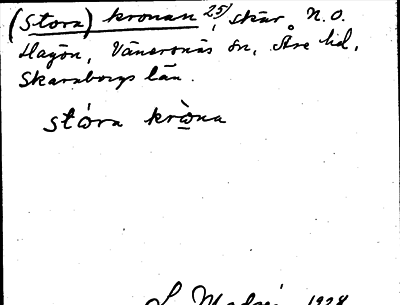 (Stora) kronan 25), skär N.O.
Hagön, Vänersnäs sn, Åse hd,
Skaraborgs län.
stóra kròna
1928